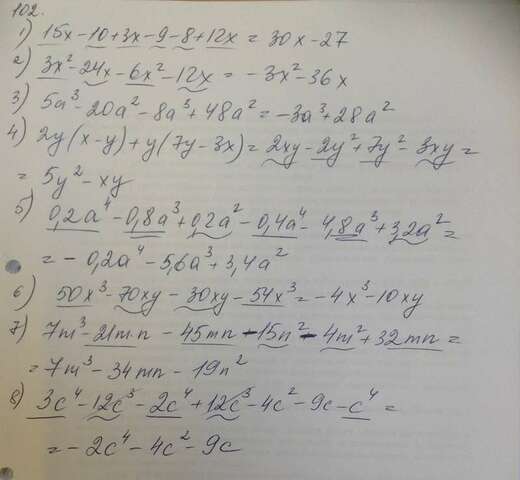 102.
1) 15x-10+3x-9-8+12x=30x-27
2) 3x²-24x-6x²-12x=-3x²-36x
3) 5a³-20a²-8a³+48a²=-3a³+28a²
4) 2y(x-y)+y(7y-3x)=2xy-2y²+7y²-3xy=
=5y²-xy
5) 0,2a⁴-0,8a³+0,2a²-0,4a⁴-4,8a³+3,2a²=
=-0,2a⁴-5,6a³+3,4a²
6) 50x³-70xy-30xy-54x³=-4x³-10xy
7) 7m³-21mn-45mn-15n²-4m²+32mn=
=7m³-34mn-19n²
8) 3c⁴-12c³-2c⁴+12c³-4c²-9c-c⁴=
=-2c⁴-4c²-9c